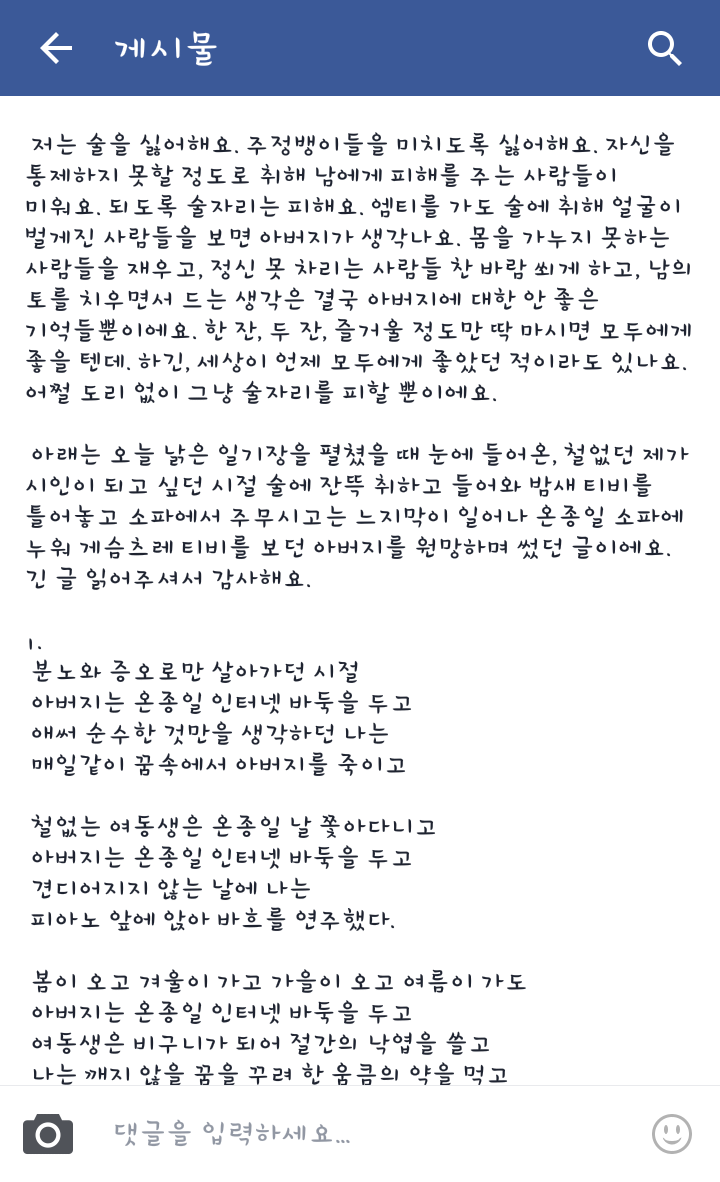 게시물
저는 술을 싫어해요. 주정뱅이들을 미치도록 싫어해요. 자신을
통제하지 못할 정도로 취해 남에게 피해를 주는 사람들이
미워요. 되도록 술자리는 피해요. 엠티를 가도 술에 취해 얼굴이
벌게진 사람들을 보면 아버지가 생각나요. 몸을 가누지 못하는
사람들을 재우고, 정신 못 차리는 사람들 찬 바람 쐬게 하고, 남의
토를 치우면서 드는 생각은 결국 아버지에 대한 안 좋은
기억들뿐이에요. 한 잔, 두 잔, 즐거울 정도만 딱 마시면 모두에게
좋을 텐데. 하긴, 세상이 언제 모두에게 좋았던 적이라도 있나요.
어쩔 도리 없이 그냥 술자리를 피할 뿐이에요.
아래는 오늘 낡은 일기장을 펼쳤을 때 눈에 들어온, 철없던 제가
시인이 되고 싶던 시절 술에 잔뜩 취하고 들어와 밤새 티비를
틀어놓고 소파에서 주무시고는 느지막이 일어나 온종일 소파에
누워 게슴츠레 티비를 보던 아버지를 원망하며 썼던 글이에요.
긴 글 읽어주셔서 감사해요.
1.
분노와 증오로만 살아가던 시절
아버지는 온종일 인터넷 바둑을 두고
애써 순수한 것만을 생각하던 나는
매일같이 꿈속에서 아버지를 죽이고
철없는 여동생은 온종일 날 쫓아다니고
아버지는 온종일 인터넷 바둑을 두고
견디어지지 않는 날에 나는
피아노 앞에 앉아 바흐를 연주했다.
봄이 오고 겨울이 가고 가을이 오고 여름이 가도
아버지는 온종일 인터넷 바둑을 두고
여동생은 비구니가 되어 절간의 낙엽을 쓸고
나는 깨지 않을 꿈을 꾸려 한 움큼의 약을 먹고
댓글을 입력하세요...